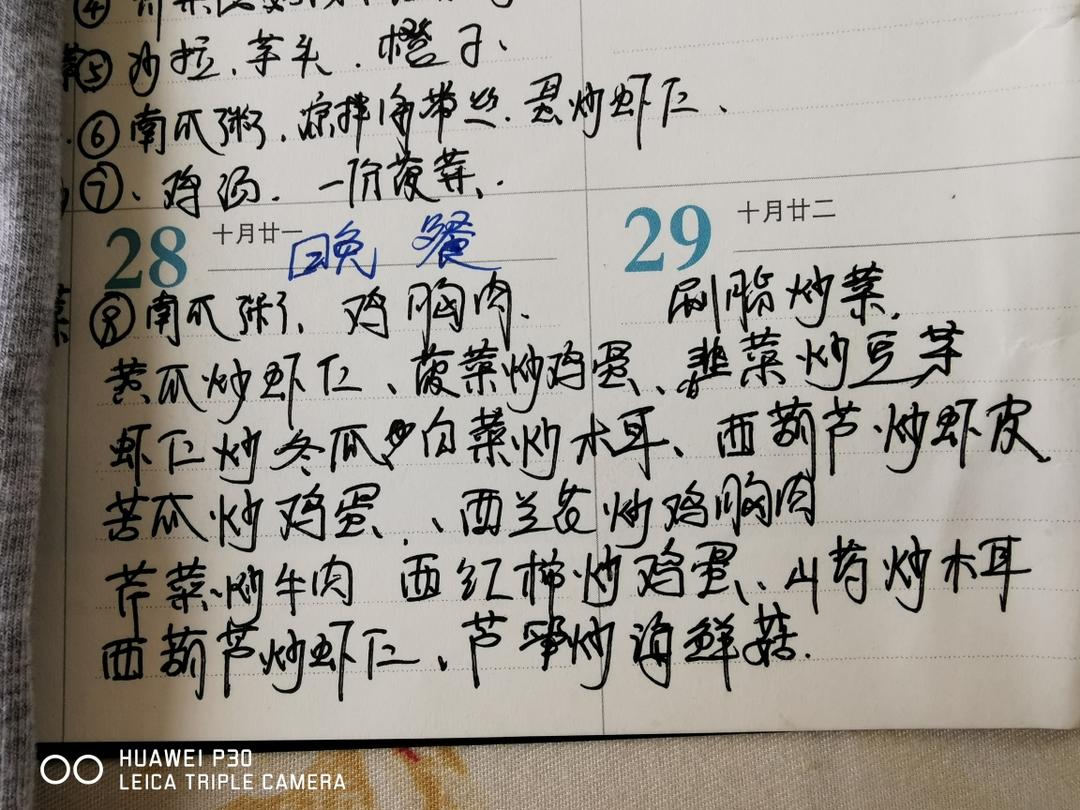 ④
⑤沙拉、芋头、橙子、
⑥南瓜粥、凉拌海带丝、蛋炒虾仁、
⑦、鸡汤、一份菠菜、
28 十月廿一 晚餐 29 十月廿二
⑧南瓜粥、鸡胸肉、 刷脂炒菜、
黄瓜炒虾仁、菠菜炒鸡蛋、韭菜炒豆芽
虾仁炒冬瓜 白菜炒木耳、西葫芦炒虾皮、
苦瓜炒鸡蛋、、西兰花炒鸡胸肉
芹菜炒牛肉 西红柿炒鸡蛋、山药炒木耳
西葫芦炒虾仁、芦笋炒海鲜菇.
HUAWEI P30
LEICA TRIPLE CAMERA